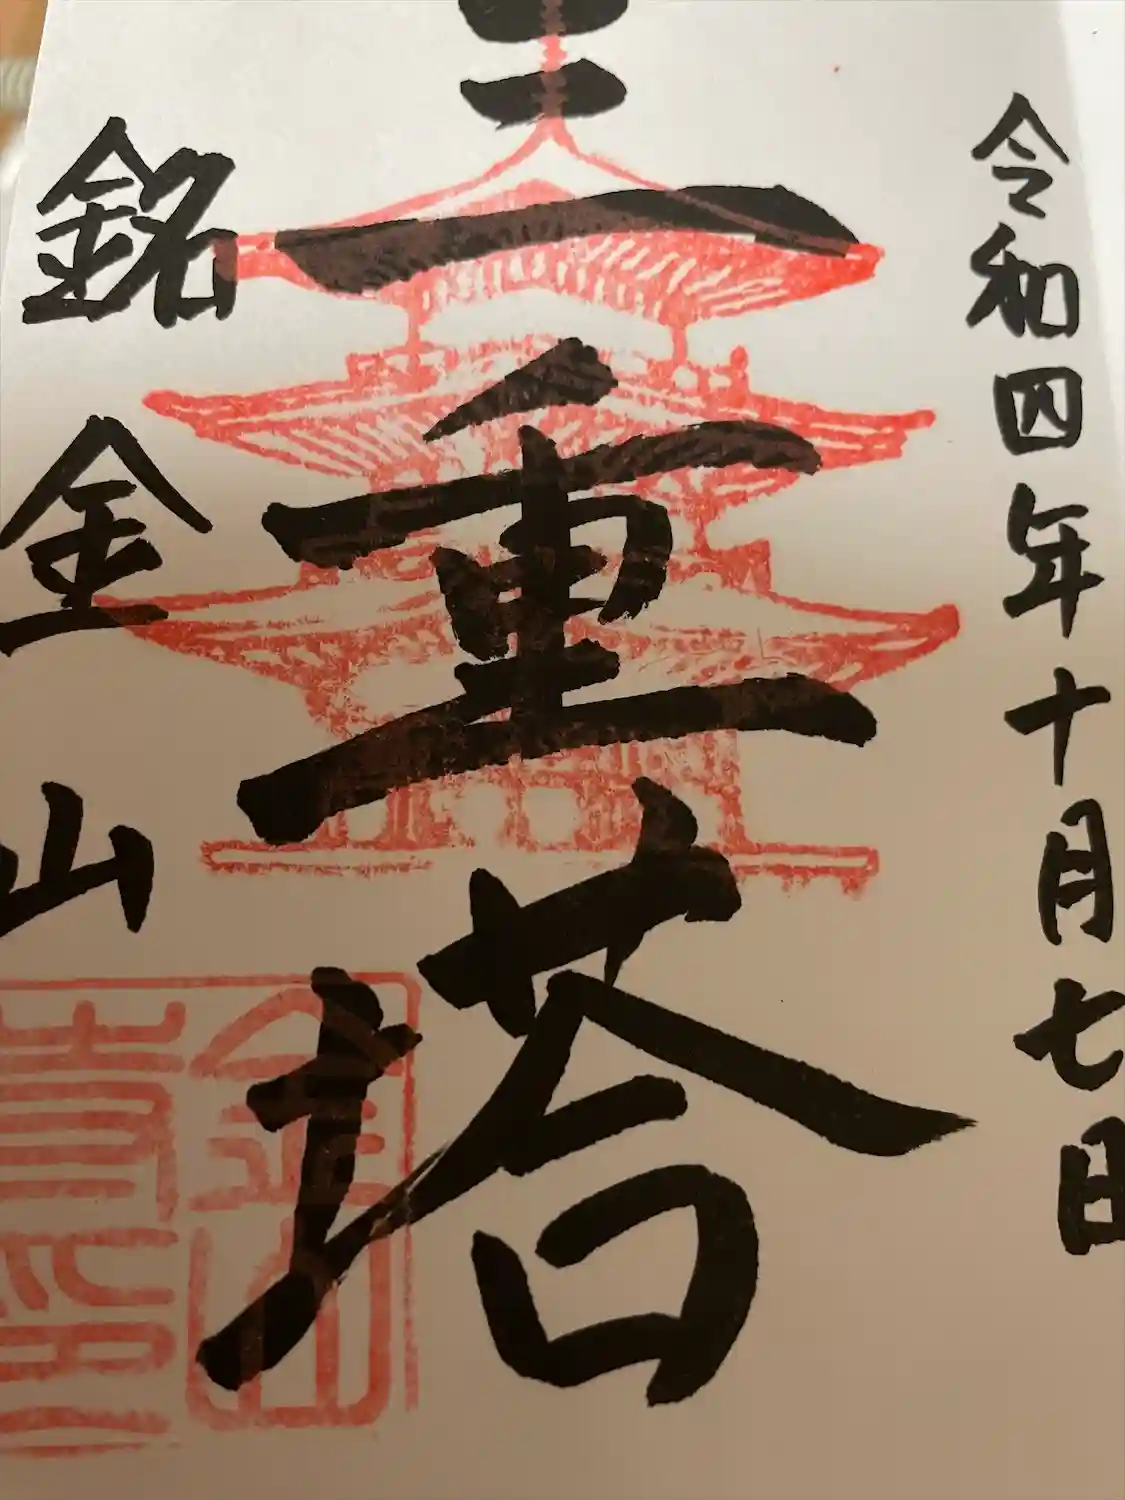 令和四年十月七日
三重塔
銘金山